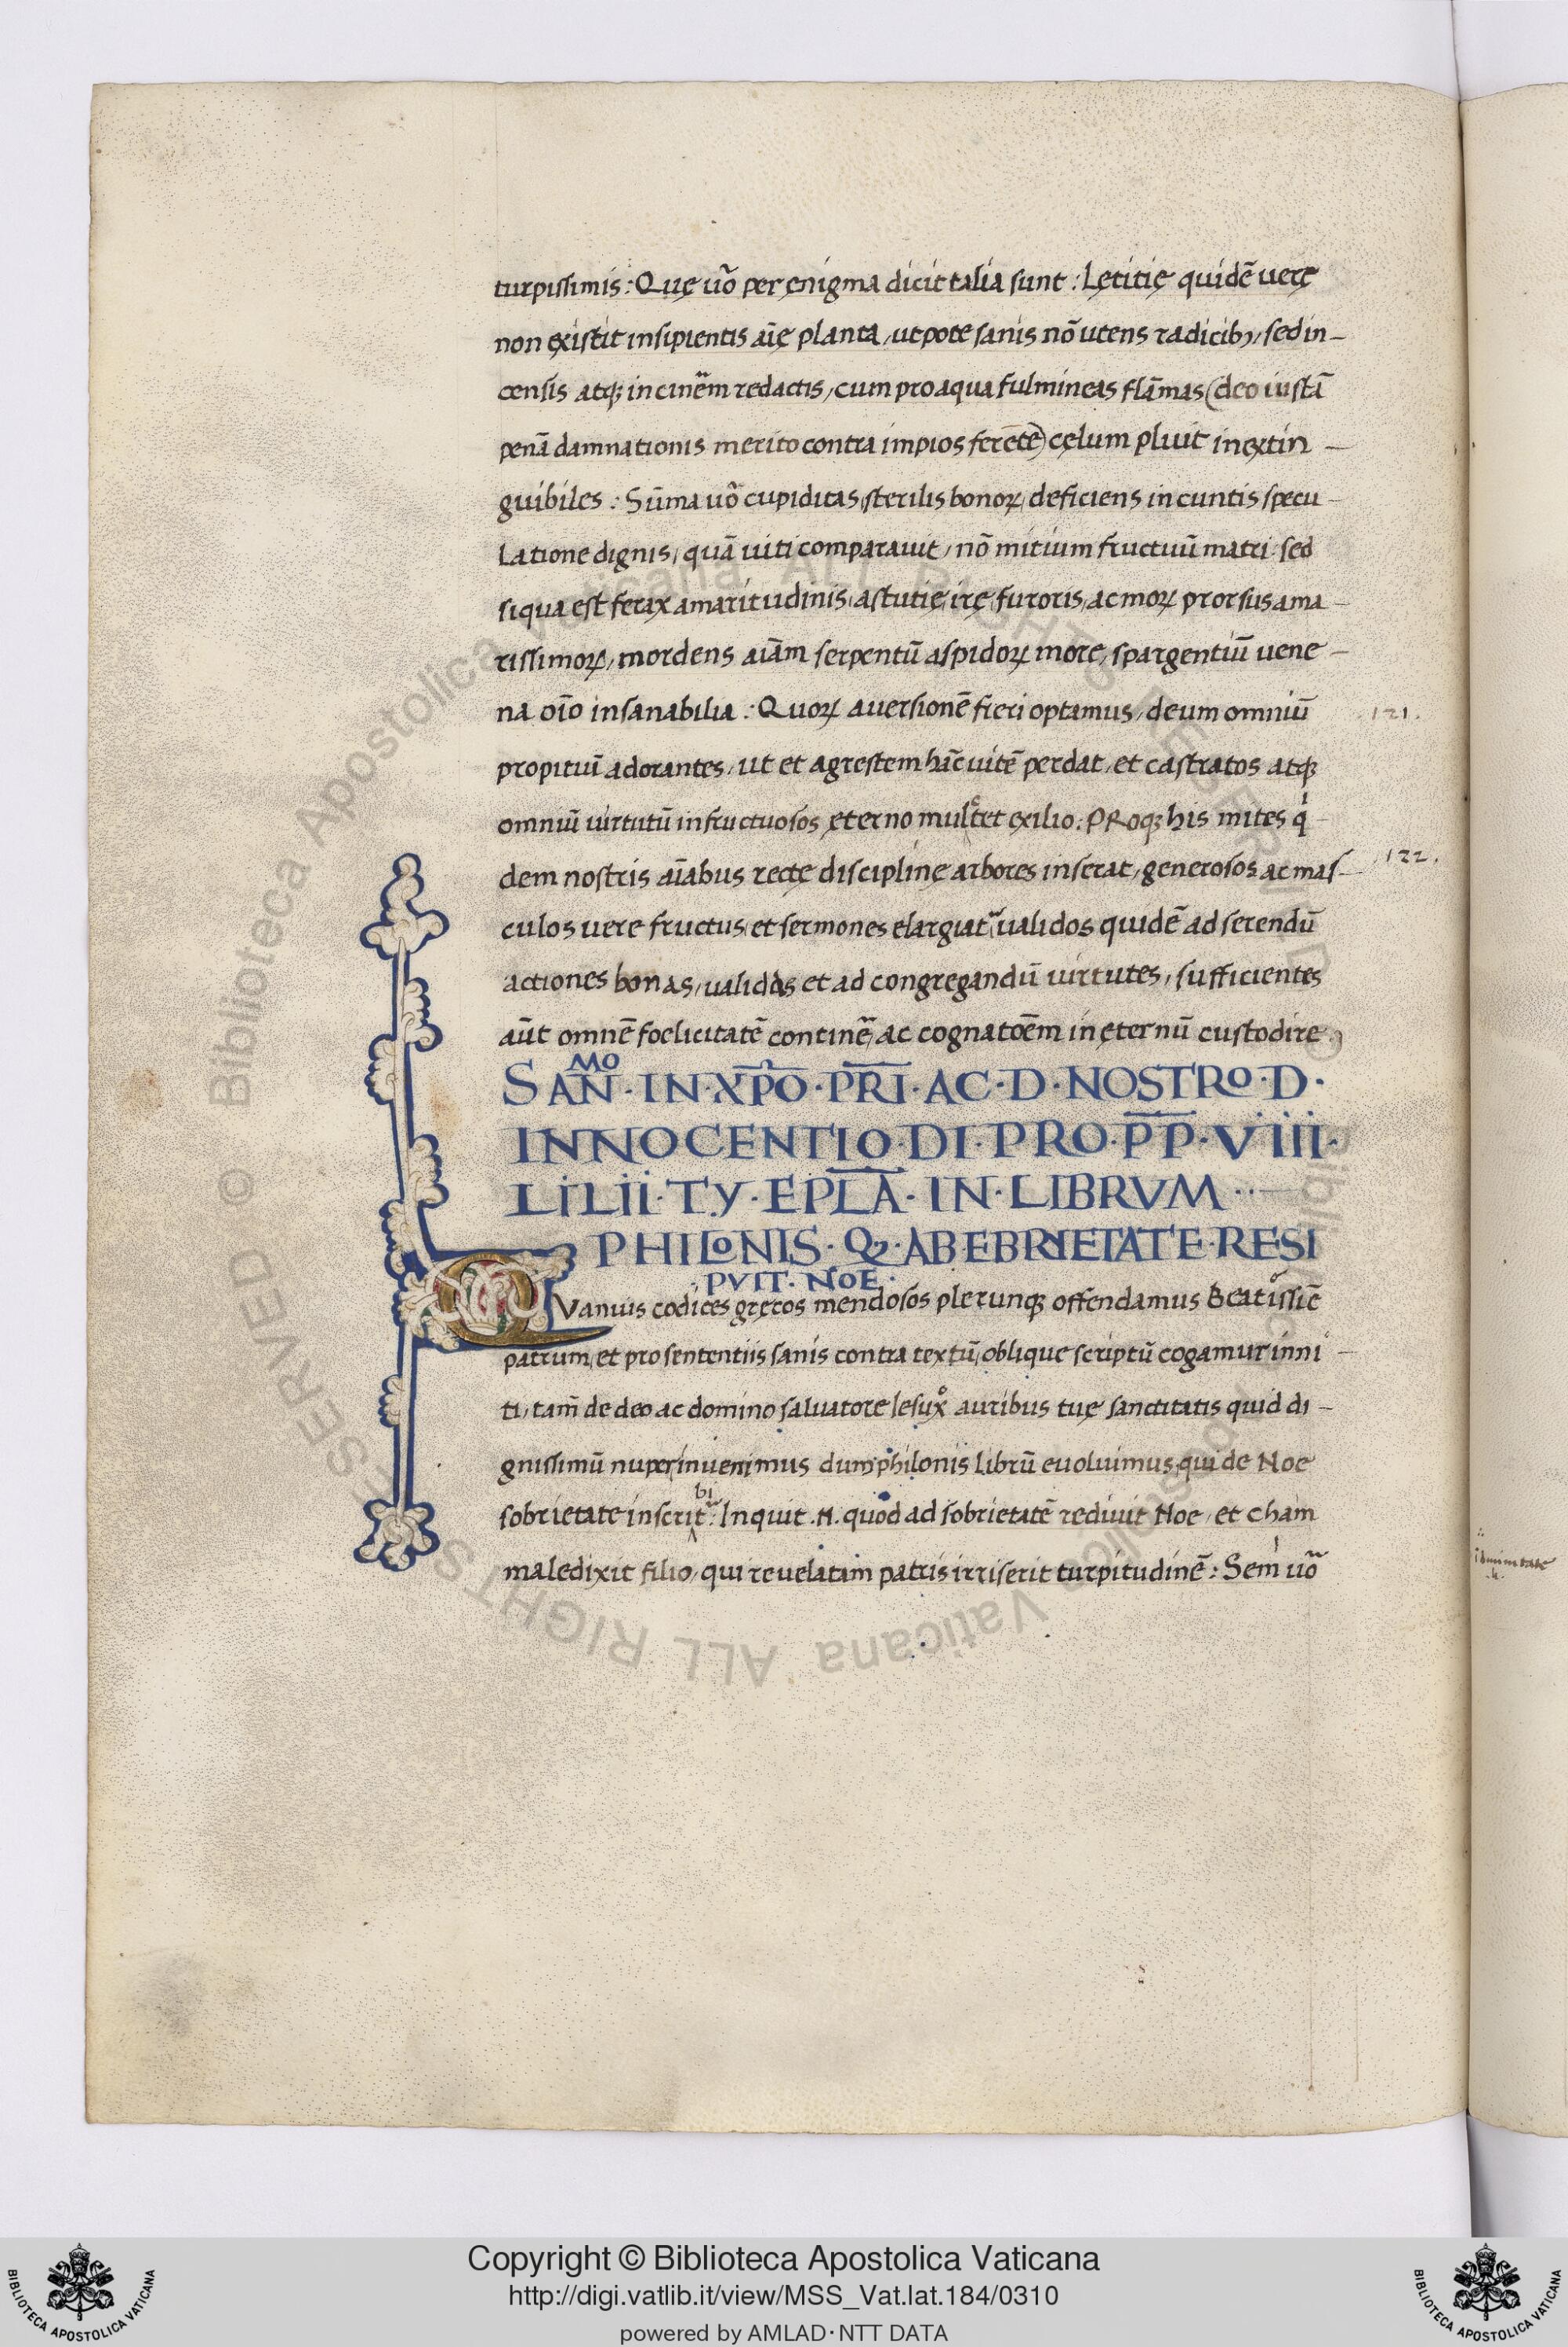 turpissimis: Quę uō per ęnigma dicit talia sunt: Lętitię quidē uerę
non existit insipientis aīę planta, utpote sanis nō utens radicibȝ, sed in-
censis atqȝ in cinēm redactis, cum pro aqua fulmineas flāmas (deo iustā
penā damnationis merito contra impios ferētē) cęlum pluit inextin-
guibiles: Sūma uō cupiditas sterilis bonoꝝ, deficiens in cuntis specu-
latione dignis, quā uiti comparauit, nō mitium fructuū matri: sed
siqua est ferax amaritudinis, astutię, irę, furoris, ac moꝝ prorsus ama-
rissimoꝝ, mordens aiām serpentū aspidoꝝ more, spargentiū uene-
na oīo insanabilia: Quoꝝ auersionē fieri optamus, deum omniū
121.
propitiū adorantes, ut et agrestem hāc uitē perdat, et castratos atqȝ
omniū uirtutū infructuosos ęterno mulctet exilio: PRoqȝ his mites q̇
dem nostris aīabus rectę disciplinę arbores inserat, generosos ac mas-
122.
culos uere fructus, et sermones elargiat᷑ ualidos quidē ad serendū
actiones bonas, validos et ad congregandū uirtutes, sufficientes
aūt omnē foelicitatē continē, ac cognatōem in ęternū custodire
SAN̄MO · IN · XP̄O · PR̄I · AC · D · NOSTRO · D ·
INNOCENTIO · DI · PRO · P̄P̄ · VIII ·
LILII · TY · EPL̄A · IN · LIBRVM ··
PHILONIS · Qȝ · AB EBRIETATE · RESI
· PVIT · NOE ·
QVanuis codices gręcos mendosos plerunqȝ offendamus Beatissiē
patrum, et pro sententiis sanis contra textū, oblique scriptū cogamur inni-
ti, tam̄ de deo ac domino saluatore Iesu xͦ auribus tuę sanctitatis quid di-
gnissimū nuper inuenimus dum philonis librū euoluimus, qui de Noe
sobrietate inscribit᷑: Inquit .n. quod ad sobrietatē rediuit Noe, et Cham
maledixit filio, qui reuelatam patris irriserit turpitudinē: Sem uō
Copyright © Biblioteca Apostolica Vaticana
http://digi.vatlib.it/view/MSS_Vat.lat.184/0310
powered by AMLAD·NTT DATA
BIBLIOTECA APOSTOLICA VATICANA
BIBLIOTECA APOSTOLICA VATICANA